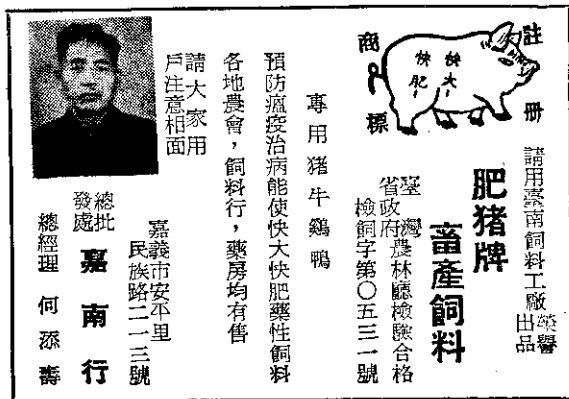 註册
商標
快大!
快肥!
請用臺南飼料工廠榮譽出品
肥猪牌
畜產飼料
臺灣省政府農林廳檢驗合格
檢飼字第〇五三一號
專用猪牛鷄鴨
預防瘟疫治病能使快大快肥藥性飼料
各地農會，飼料行，藥房均有售
請大家用
戶注意相面
嘉義市安平里
民族路二一三號
總批發處 嘉南行
總經理 何添壽